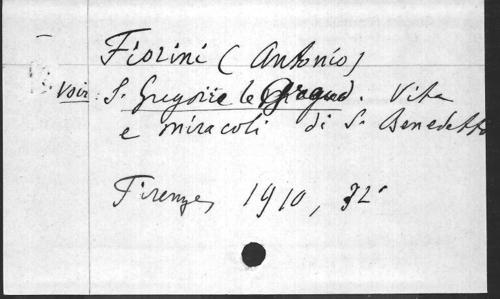 Fiorini (Antonio)
Voir S. Gregoire le Grand. Vita
e miracoli di S. Benedetto
Firenze, 1910, 32°